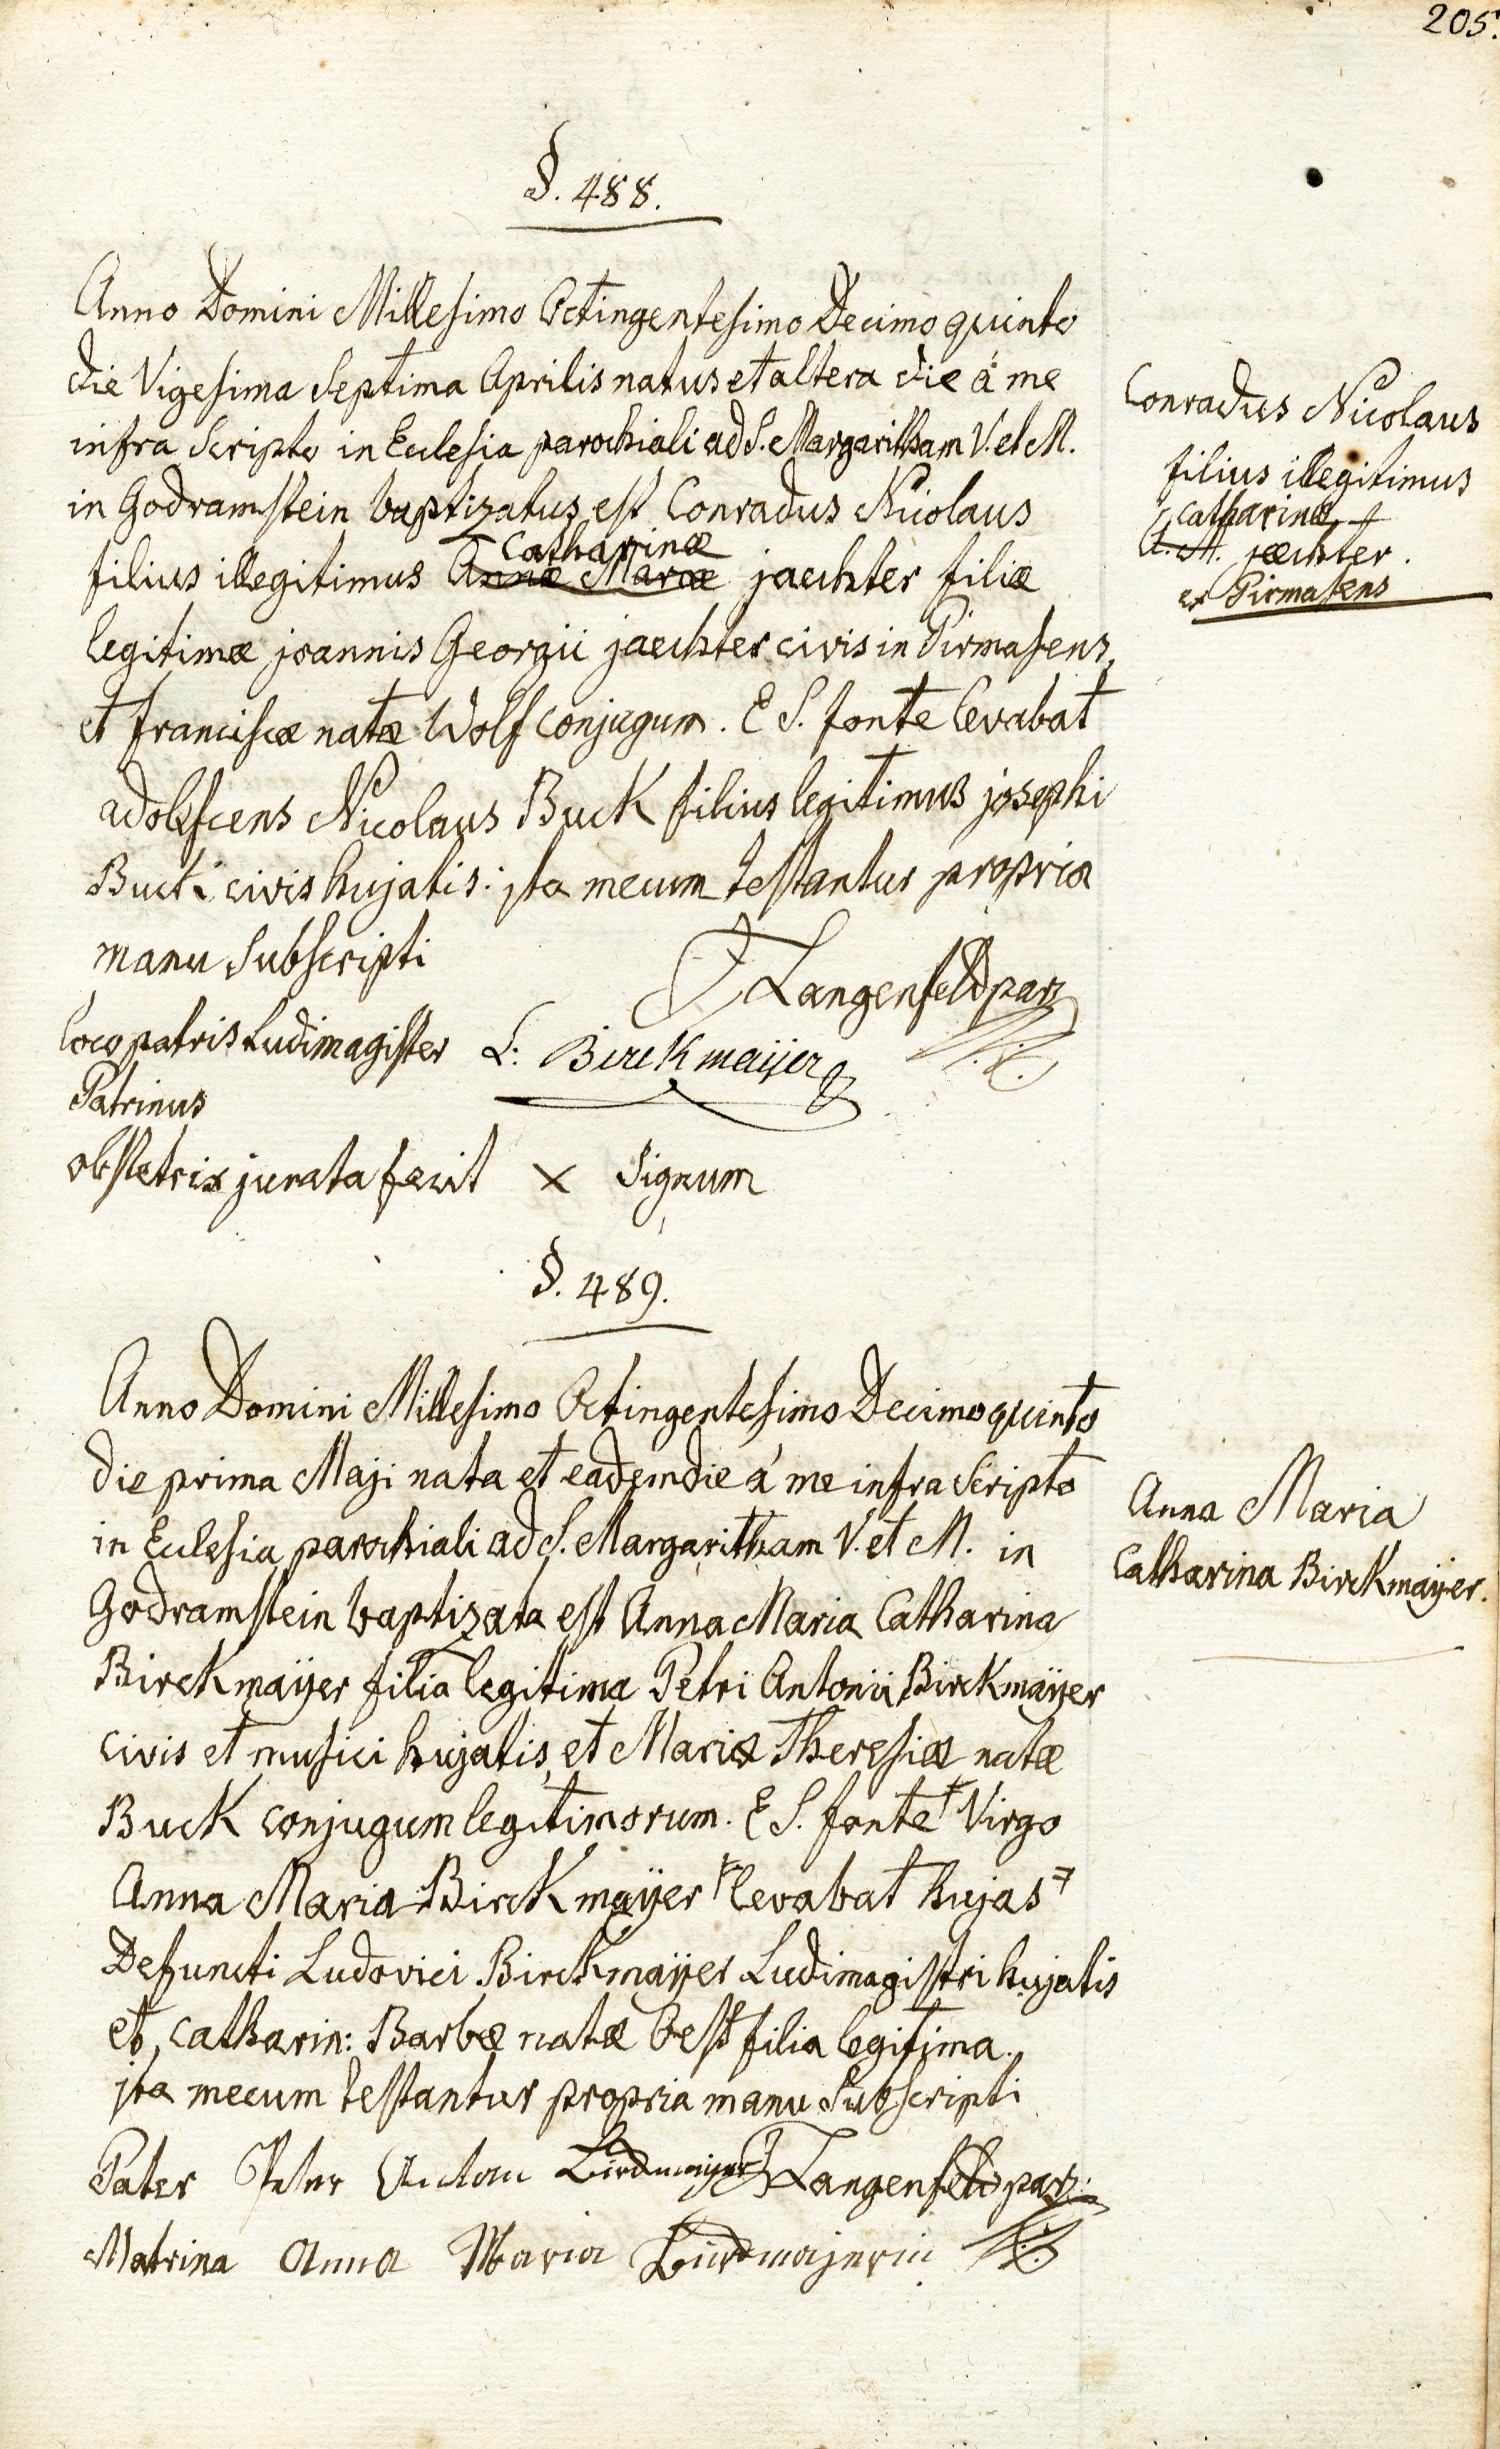 205.
§. 488.
Anno Domini Millesimo Octingentesimo Decimo quinto
die Vigesima Septima Aprilis natus et altera die á me
infra Scripto in Ecclesia parochiali ad S. Margaritham V. et M.
in Godramstein baptizatus est Conradus Nicolaus
Catharinæ
filius illegitimus Annæ Mariæ jaechter filiæ
legitimæ joannis Georgii jaechter civis in Pirmasens,
et franciscæ natæ Wolf conjugum. E S. fonte levabat
adolescens Nicolaus Buck filius legitimus josephi
Buck civis hujatis: jta mecum testantur propria
manu Subscripti
Langenfeld par
loco patris Ludimagister L: Birckmaijer
Patrinus
obstetrix jurata fecit × Signum
Conradus Nicolaus
filius illegitimus
Catharinæ
A. M. jaechter.
ex Pirmasens
§. 489.
Anno Domini Millesimo Octingentesimo Decimo quinto
die prima Maji nata et eadem die á me infra Scripto
in Ecclesia parochiali ad S. Margaritham V. et M. in
Godramstein baptizata est Anna Maria Catharina
Birckmaijer filia legitima Petri Antonii Birckmaijer
civis et musici hujatis, et Mariæ Theresiæ natæ
Buck conjugum legitimorum. E S. fonte Virgo
Anna Maria Birckmaijer levabat hujas
Defuncti Ludovici Birckmaijer Ludimagistri hujatis
et Catharin: Barbæ natæ Oest filia legitima.
jta mecum testantur propria manu Subscripti
Pater Peter Anton Birckmaijer Langenfeld par:
Matrina Anna Maria Birckmajerin
Anna Maria
Catharina Birckmaijer.